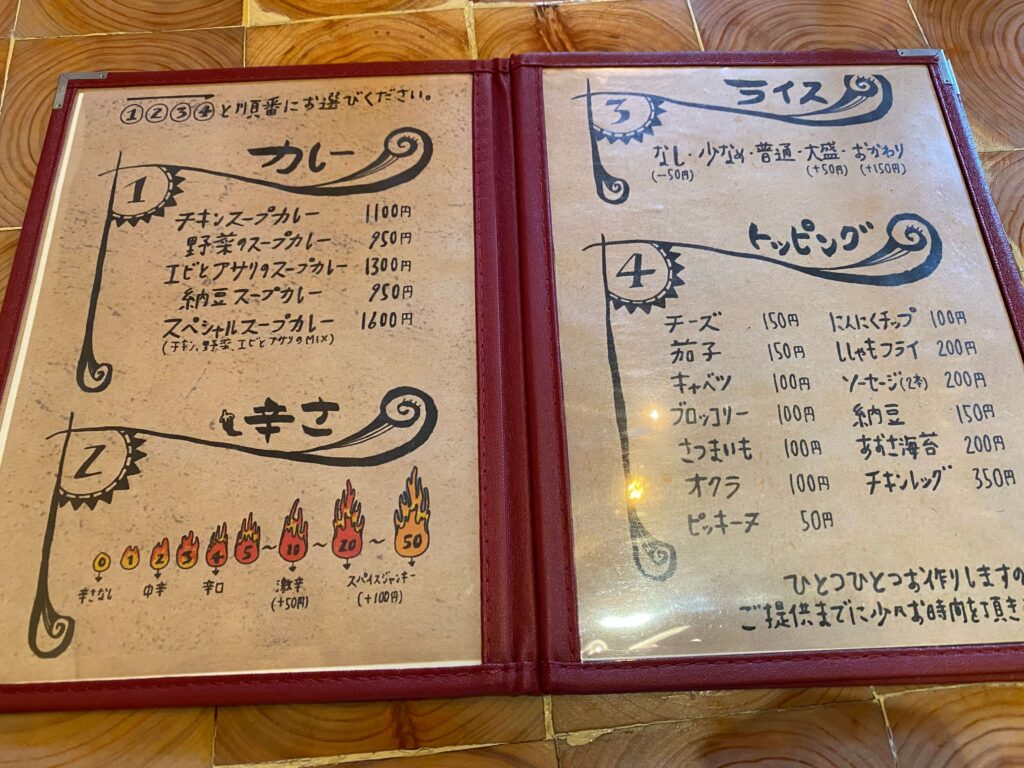 ①②③④と順番にお選びください。
1 カレー
チキンスープカレー 1100円
野菜のスープカレー 950円
エビとアサリのスープカレー 1300円
納豆スープカレー 950円
スペシャルスープカレー 1600円
(チキン、野菜、エビとアサリのMIX)
2 辛さ
0 1 2 3 4 5 ~ 10 ~ 20 ~ 50
辛さなし 中辛 辛口 激辛 スパイスジャンキー
(+50円) (+100円)
3 ライス
なし・少なめ・普通・大盛・おかわり
(-50円) (+50円) (+150円)
4 トッピング
チーズ 150円 にんにくチップ 100円
茄子 150円 ししゃもフライ 200円
キャベツ 100円 ソーセージ(2本) 200円
ブロッコリー 100円 納豆 150円
さつまいも 100円 あおさ海苔 200円
オクラ 100円 チキンレッグ 350円
ピッキーヌ 50円
ひとつひとつお作りしますの
ご提供までに少々お時間を頂き